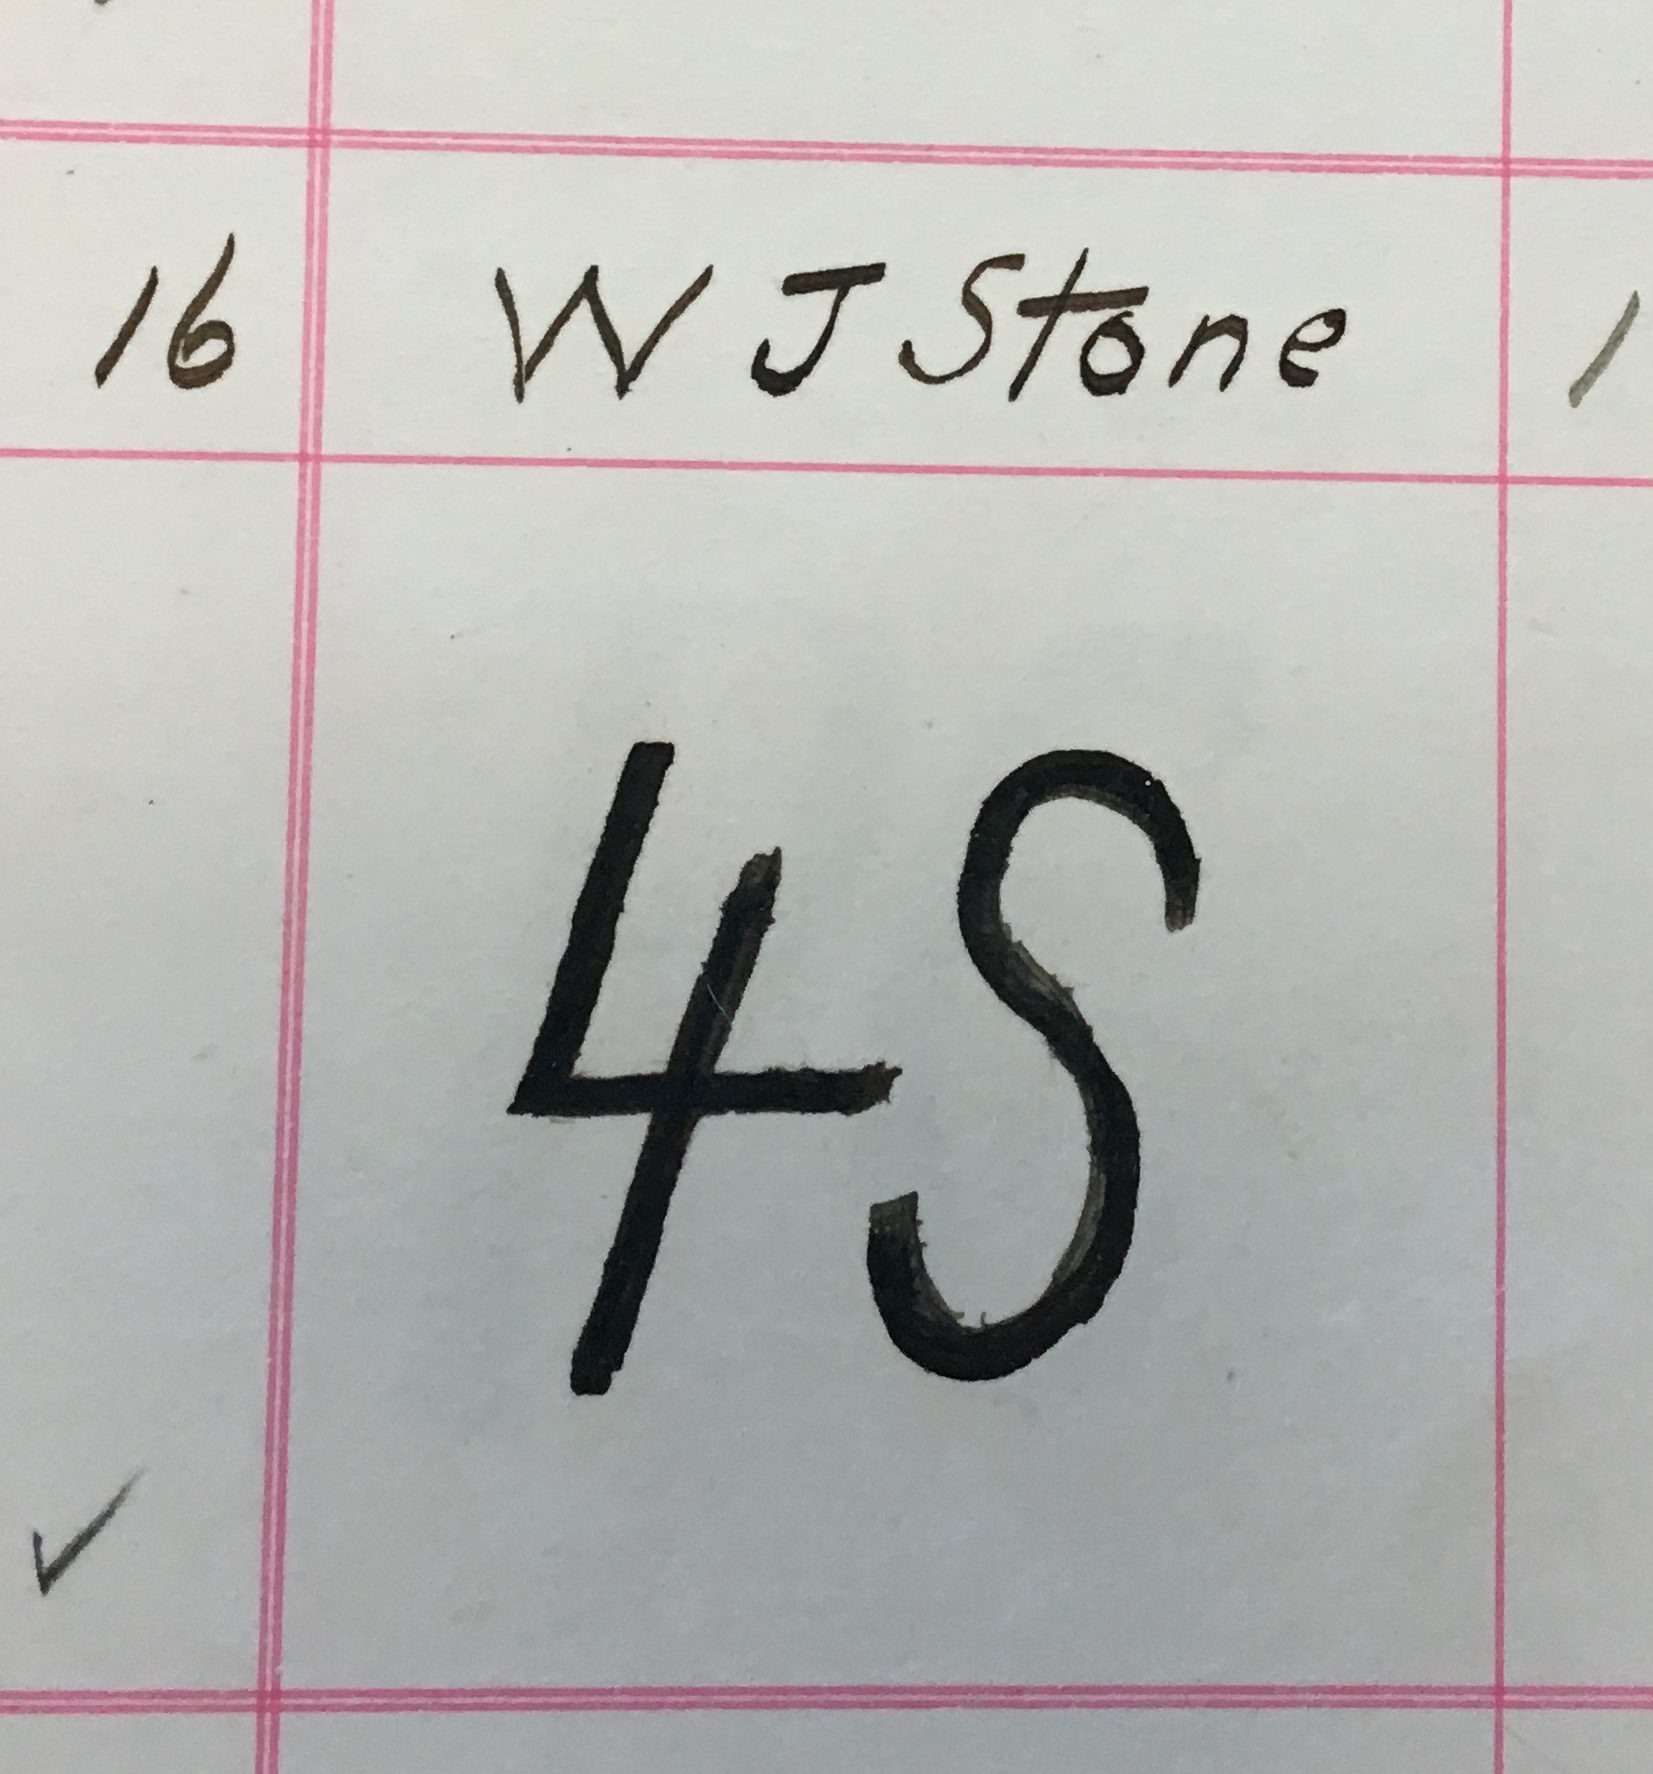 16 W J Stone 1
4S
✓